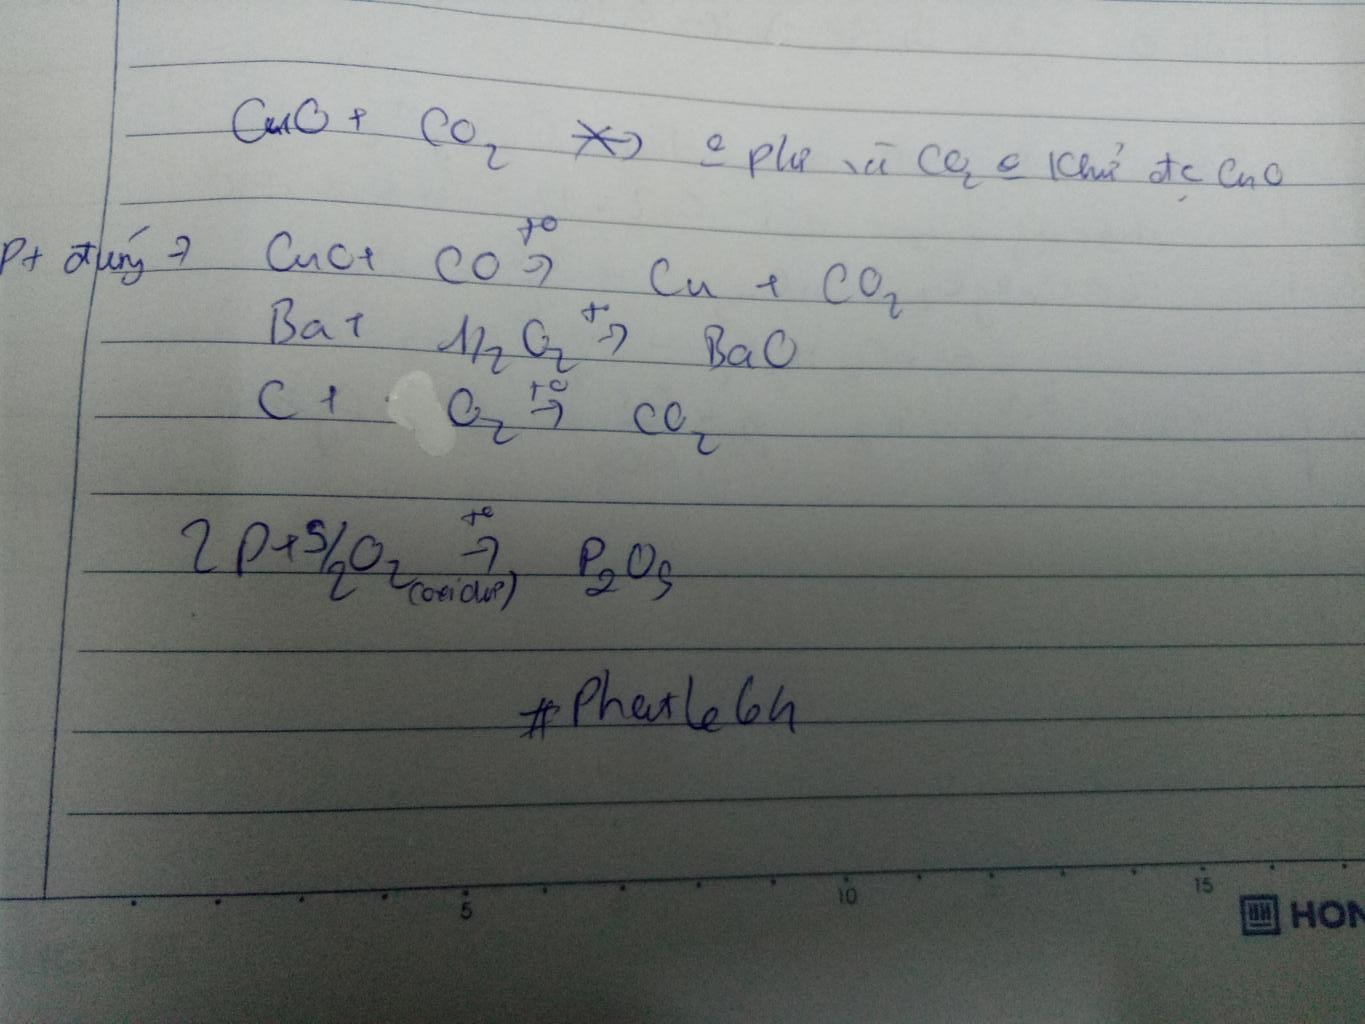 CuO + CO2 → o phư vì CO2 o khử đc CuO
Pt đúng → CuO + CO to→ Cu + CO2
Ba + 1/2 O2 to→ BaO
C + O2 to→ CO2
2P + 5/2 O2 to→ P2O5
#Phatle64
5 10 15
HON